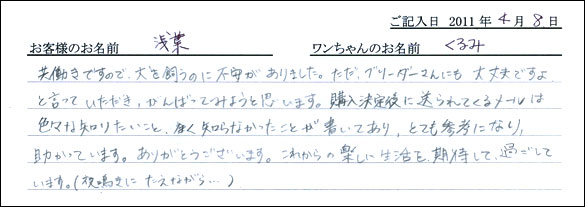 ご記入日 2011年4月8日
お客様のお名前 浅葉 ワンちゃんのお名前 くるみ
共働きですので、犬を飼うのに不安がありました。ただ、ブリーダーさんにも大丈夫ですよ
と言っていただき、がんばってみようと思います。購入決定後に送られてくるメールは
色々な知りたいこと、全く知らなかったことが書いてあり、とても参考になり、
助かっています。ありがとうございます。これからの楽しい生活を期待して、過ごして
います。(夜鳴きにたえながら…)